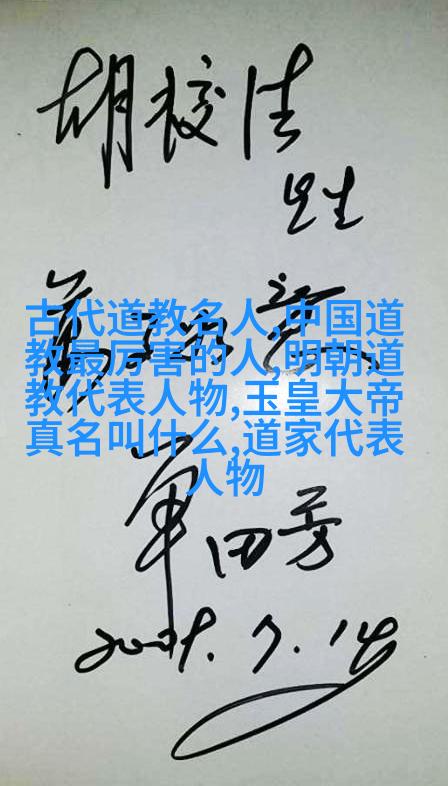 胡校
先生
古代道教名人,中国道
教最厉害的人,明朝道
教代表人物,玉皇大帝
真名叫什么,道家代表
人物
单田芳